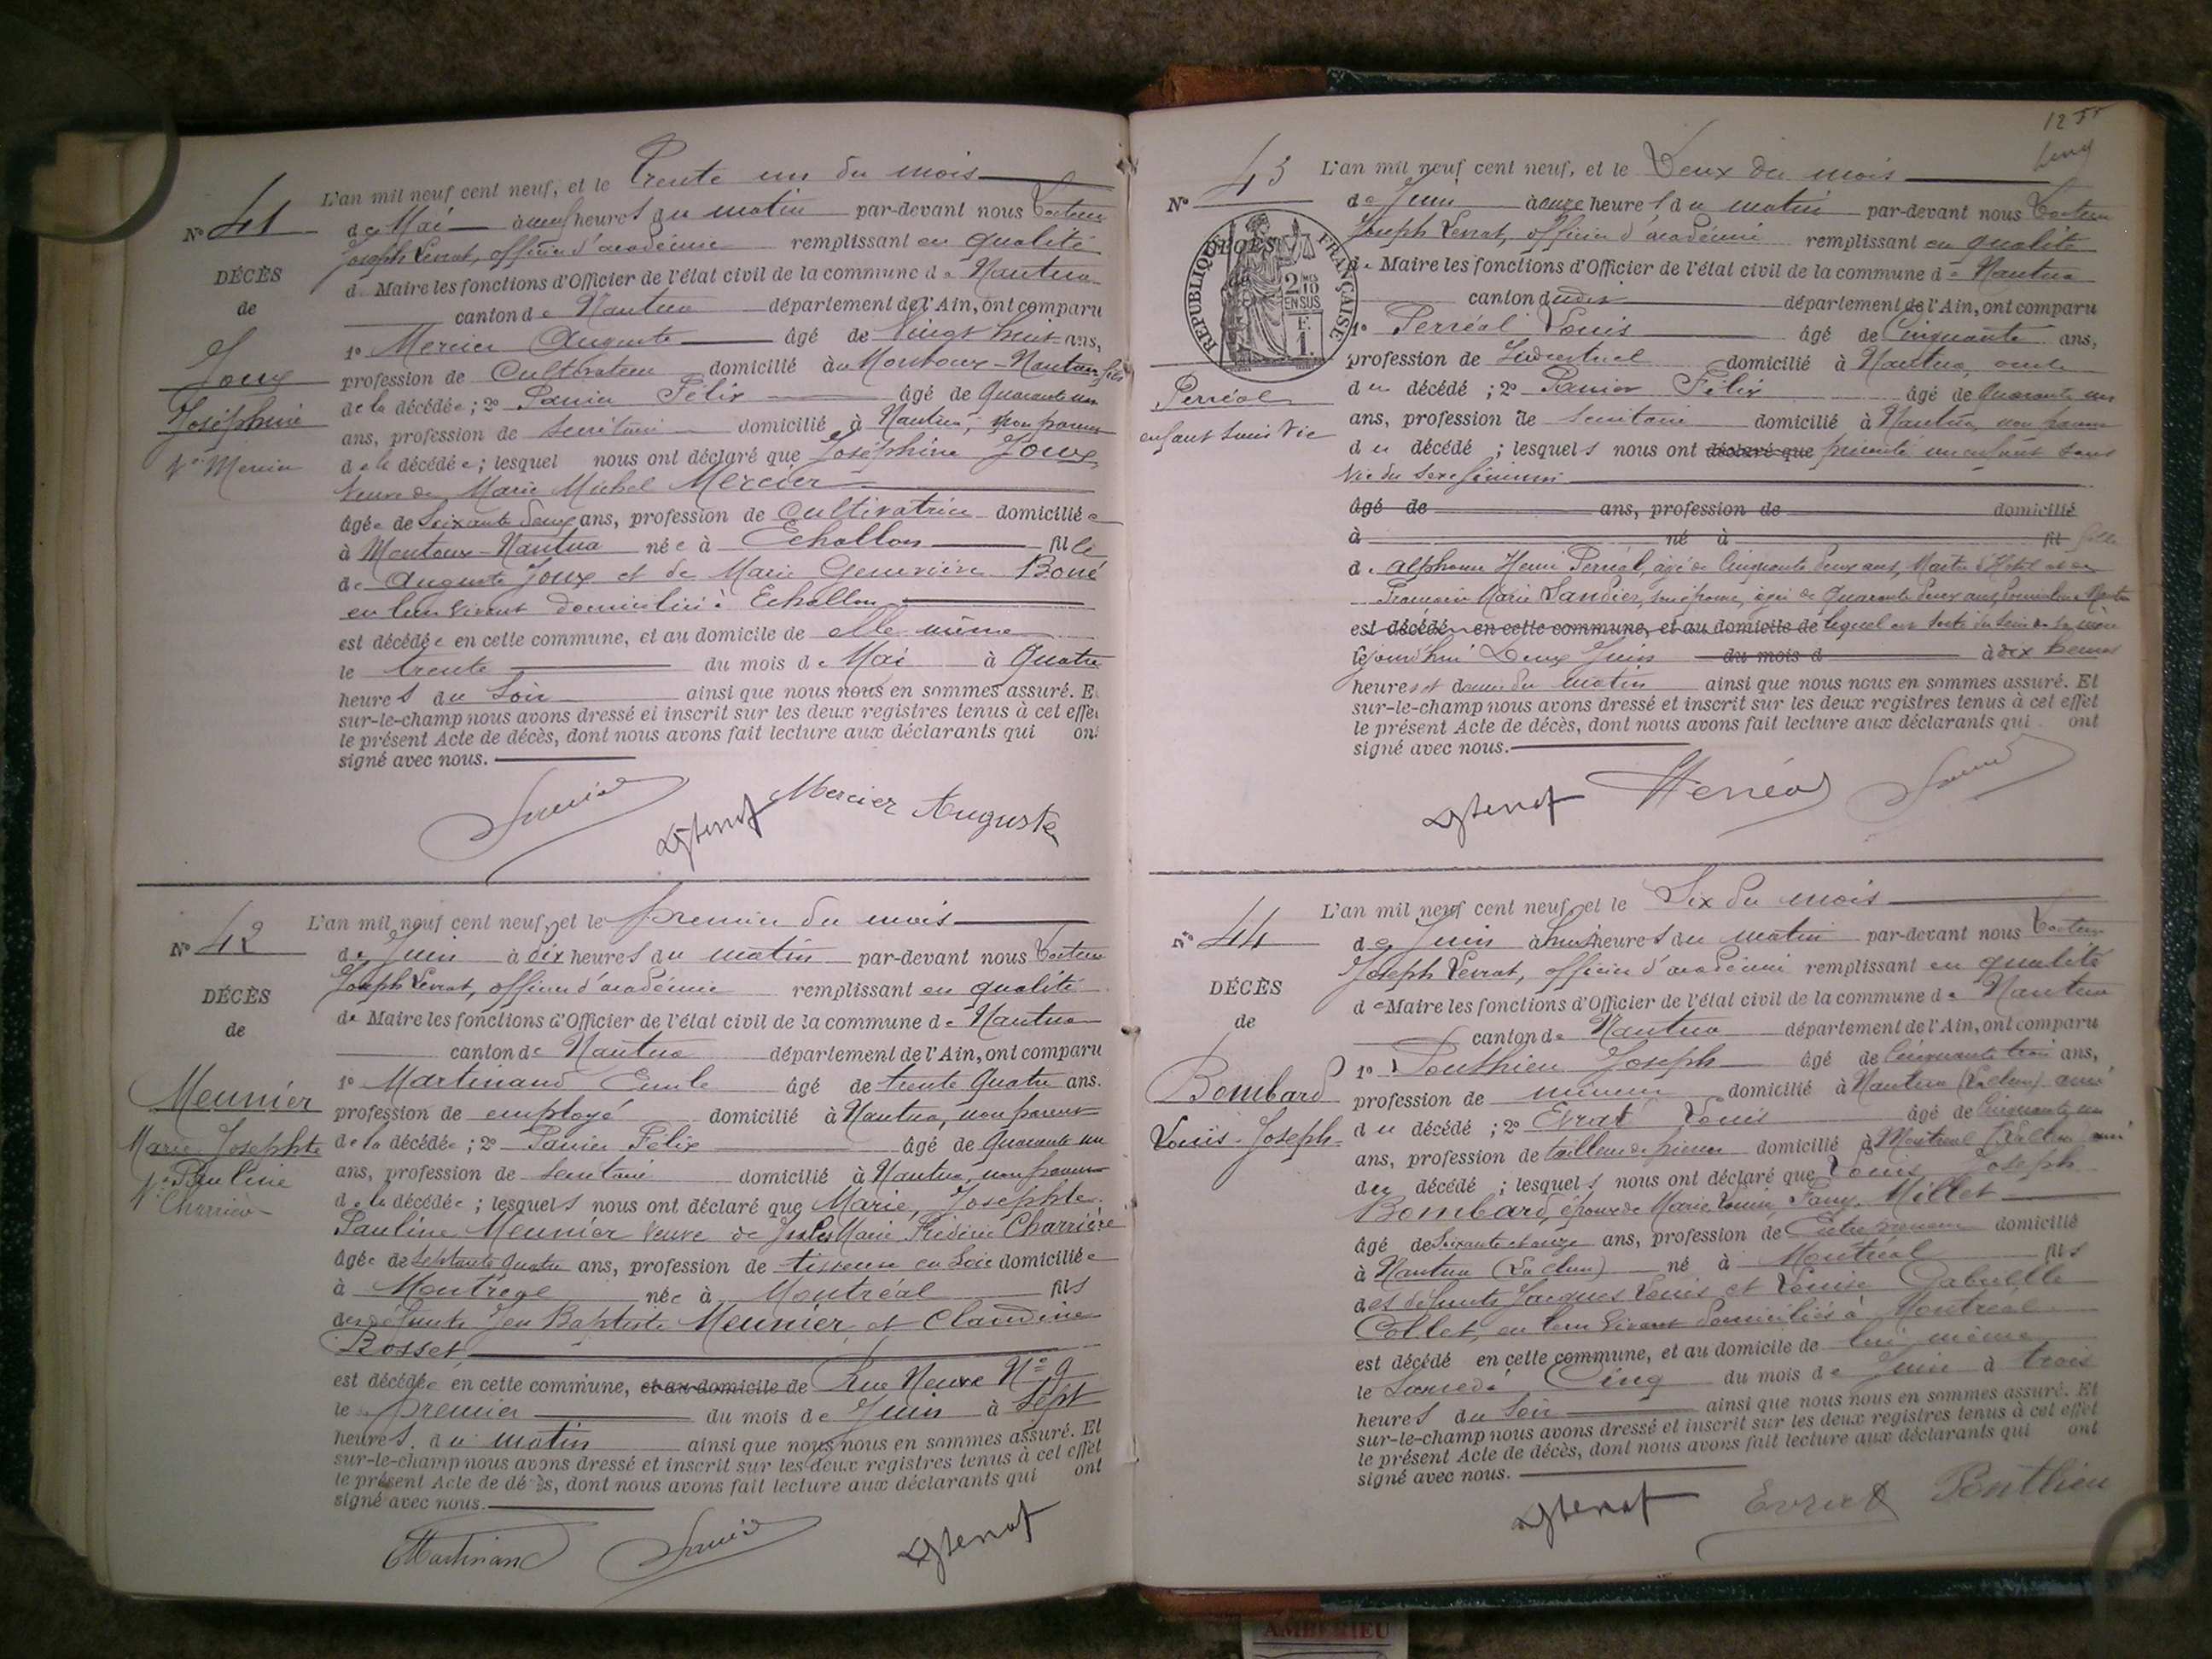 L'an mil neuf cent neuf, et le Trente un du mois
N° 41
de Mai à neuf heures du matin par-devant nous Docteur
Joseph Levrat, officier d'académie remplissant en qualité
DÉCÈS
de Maire les fonctions d'Officier de l'état civil de la commune de Nantua
de
canton de Nantua département de l'Ain, ont comparu
1° Mercier Auguste âgé de vingt huit ans,
Joux
profession de Cultivateur domicilié à Montoux-Nantua, fils
Joséphine
de la décédée ; 2° Panier Félix âgé de Quarante un
ans, profession de Secrétaire domicilié à Nantua, non parent
Ve Mercier
de la décédée ; lesquel nous ont déclaré que Joséphine Joux,
Veuve de Marie Michel Mercier
âgée de Soixante deux ans, profession de Cultivatrice domiciliée
à Montoux-Nantua née à Echallon fille
de Auguste Joux et de Marie Geneviève Boué
en leur vivant domiciliés à Echallon
est décédée en cette commune, et au domicile de elle même
le trente du mois de Mai à Quatre
heures du Soir ainsi que nous nous en sommes assuré. E
sur-le-champ nous avons dressé et inscrit sur les deux registres tenus à cet effet
le présent Acte de décès, dont nous avons fait lecture aux déclarants qui ont
signé avec nous.
Mercier Auguste
L'an mil neuf cent neuf, et le premier du mois
N° 42
de Juin à dix heures du matin par-devant nous Docteur
Joseph Levrat, officier d'académie remplissant en qualité
DÉCÈS
de Maire les fonctions d'Officier de l'état civil de la commune de Nantua
de
canton de Nantua département de l'Ain, ont comparu
1° Martinand Emile âgé de trente Quatre ans.
Meunier
profession de employé domicilié à Nantua, non parent
Marie Josephte
de la décédée ; 2° Panier Félix âgé de Quarante un
Pauline
ans, profession de Secrétaire domicilié à Nantua, non parent
Ve Charrière
de la décédée ; lesquels nous ont déclaré que Marie, Josephte
Pauline Meunier Veuve de Jules Marie Frédéric Charrière
âgée de Septante Quatre ans, profession de tisseuse en Soie domiciliée
à Montréal née à Montréal fils
des défunts Jean Baptiste Meunier et Claudine
Rosset,
est décédée en cette commune, et au domicile de Rue Neuve N° 9
le premier du mois de Juin à Sept
heures du matin ainsi que nous nous en sommes assuré. Et
sur-le-champ nous avons dressé et inscrit sur les deux registres tenus à cet effet
le présent Acte de décès, dont nous avons fait lecture aux déclarants qui ont
signé avec nous.
EMartinand
L'an mil neuf cent neuf, et le Deux du mois
N° 43
de Juin à onze heures du matin par-devant nous Docteur
Joseph Levrat, officier d'académie remplissant en qualité
DÉCÈS
RÉPUBLIQUE FRANÇAISE
2/10 EN SUS
F. 1.
de Maire les fonctions d'Officier de l'état civil de la commune de Nantua
canton dudit département de l'Ain, ont comparu
1° Perréal Louis âgé de Cinquante ans,
profession de Industriel domicilié à Nantua, oncle
Perréal
du décédé ; 2° Panier Félix âgé de Quarante un
enfant sans Vie
ans, profession de Secrétaire domicilié à Nantua, non parent
du décédé ; lesquels nous ont déclaré que présenté un enfant sans
Vie du sexe féminin
âgé de ans, profession de domicilié
à né à fil fille
de Alphonse Henri Perréal, âgé de Cinquante deux ans, Maître d'Hôtel et de
Marie Landier, son épouse, âgée de Quarante deux ans,
est décédé en cette commune, et au domicile de lequel est sorti du sein de sa mère
Aujourd'hui Deux Juin du mois d à dix heures
heures et demie du matin ainsi que nous nous en sommes assuré. Et
sur-le-champ nous avons dressé et inscrit sur les deux registres tenus à cet effet
le présent Acte de décès, dont nous avons fait lecture aux déclarants qui ont
signé avec nous.
L'an mil neuf cent neuf, et le Six du mois
N° 44
de Juin à huit heures du matin par-devant nous Docteur
Joseph Levrat, officier d'académie remplissant en qualité
DÉCÈS
de Maire les fonctions d'Officier de l'état civil de la commune de Nantua
de
canton de Nantua département de l'Ain, ont comparu
1° Ponthieu Joseph âgé de Cinquante trois ans,
Bombard
profession de mineur domicilié à Nantua (La cluse) ami
Louis-Joseph
du décédé ; 2° Evrat Louis âgé de Cinquante un
ans, profession de tailleur de pierres domicilié à Montréal (La Cluse) ami
du décédé ; lesquels nous ont déclaré que Louis Joseph
Bombard, époux de Marie Louise Fany Millet
âgé de Soixante et onze ans, profession de Entrepreneur domicilié
à Nantua (La cluse) né à Montréal fils
des défunts Jacques Louis et Louise Gabrielle
Collet, en leur vivant domiciliés à Montréal
est décédé en cette commune, et au domicile de lui même
le Samedi Cinq du mois de Juin à trois
heures du Soir ainsi que nous nous en sommes assuré. Et
sur-le-champ nous avons dressé et inscrit sur les deux registres tenus à cet effet
le présent Acte de décès, dont nous avons fait lecture aux déclarants qui ont
signé avec nous.
Evrat Ponthieu
AMBERIEU